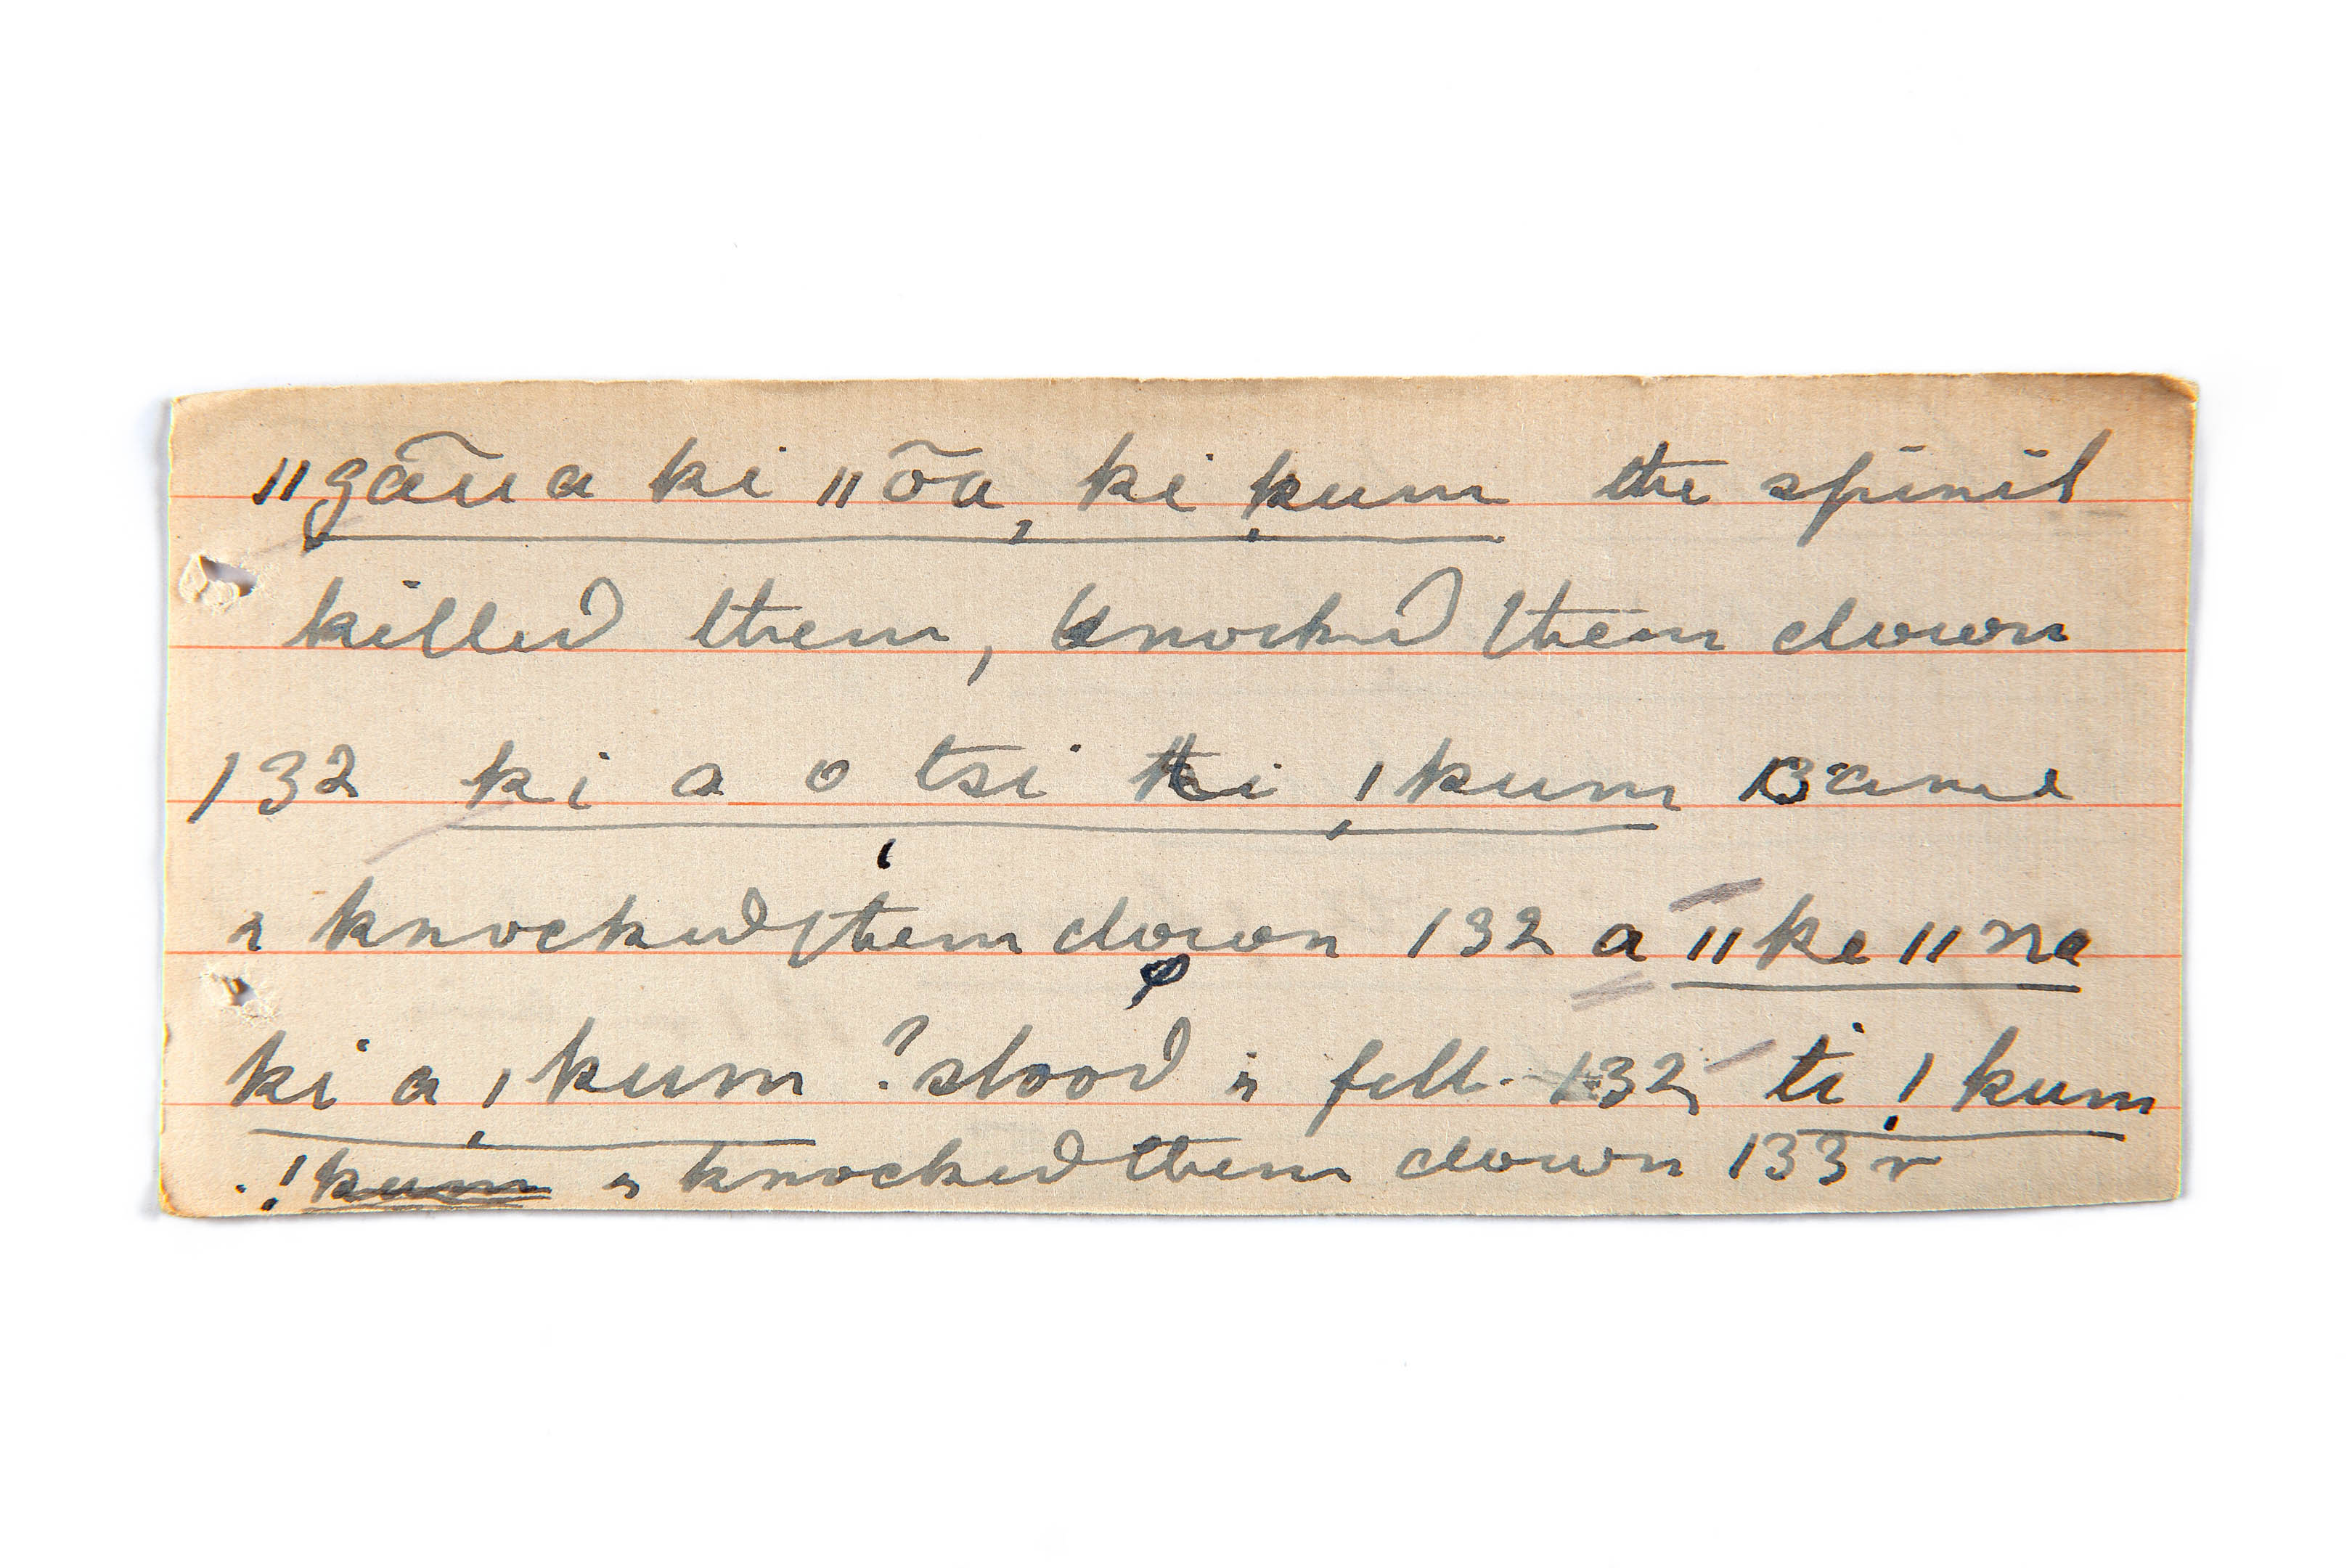 ǁgãũa ki ǁõa, ki ḳum the spirit
killed them, knocked them down
132 ki a o tsi ki !kum came
& knocked them down 132 a ǁke ǁne
ki a !kum ? stood & fell. 132 ti !kum
& knocked them down 133 r